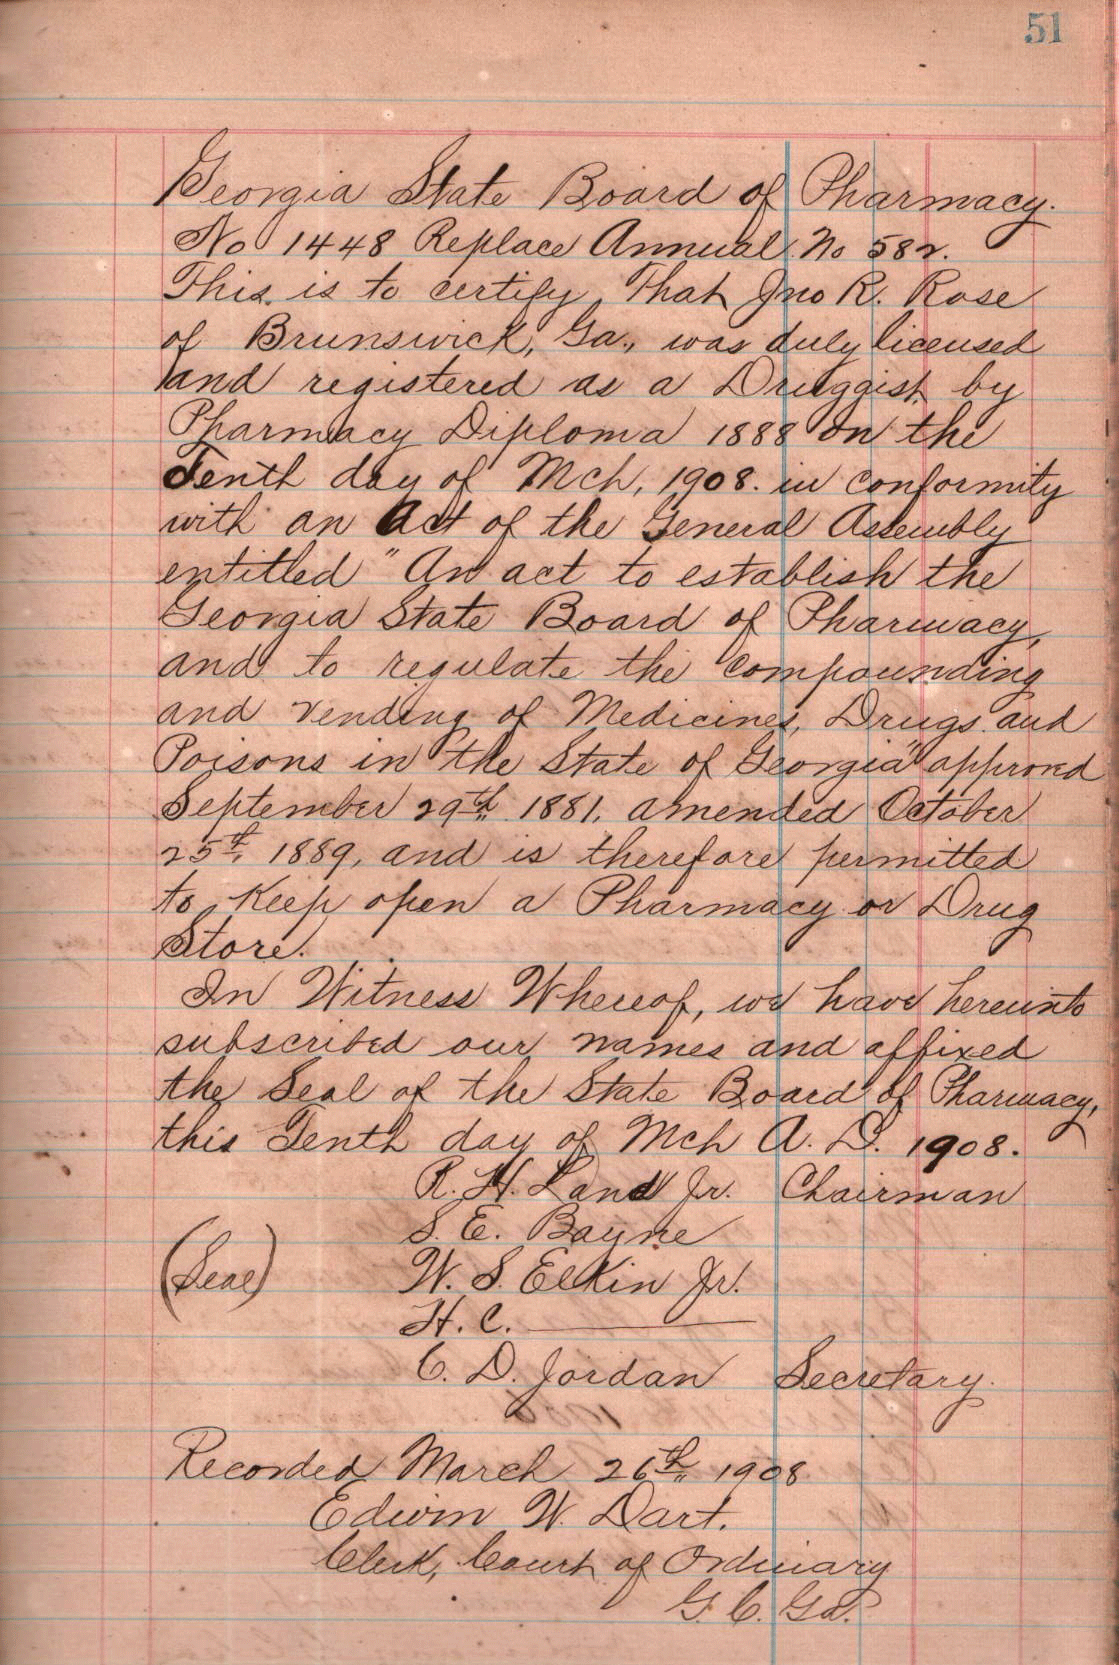 51
Georgia State Board of Pharmacy.
No 1448 Replace Annual No 582.
This is to certify, That Jno R. Rose
of Brunswick, Ga., was duly licensed
and registered as a Druggist by
Pharmacy Diploma 1888 on the
Tenth day of Mch, 1908. in conformity
with an Act of the General Assembly
entitled "An act to establish the
Georgia State Board of Pharmacy,
and to regulate the compounding
and vending of Medicines, Drugs and
Poisons in the State of Georgia" approved
September 29th 1881, amended October
25th, 1889, and is therefore permitted
to Keep open a Pharmacy or Drug
Store.
In Witness Whereof, we have hereunto
subscribed our names and affixed
the Seal of the State Board of Pharmacy,
this Tenth day of Mch A. D. 1908.
R. H. Land Jr. Chairman
S. E. Bayne
(Seal) W. S. Elkin Jr.
H. C. ———
C. D. Jordan Secretary.
Recorded March 26th 1908
Edwin W. Dart.
Clerk, Court of Ordinary
G. C. Ga.